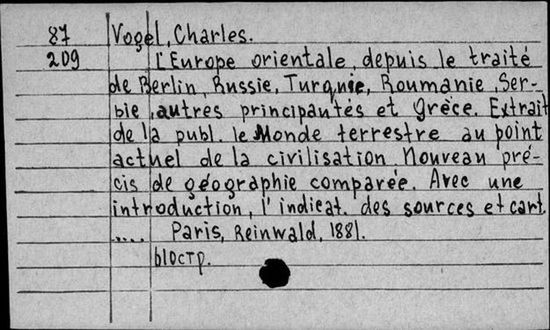 87 Vogel, Charles.
209 L'Europe orientale, depuis le traité
de Berlin, Russie, Turquie, Roumanie, Ser-
bie, autres principautés et Grèce. Extrait
de la publ. le Monde terrestre au point
actuel de la civilisation Nouveau pré-
cis de géographie comparée. Avec une
introduction, l'indicat. des sources et cart.
.... Paris, Reinwald, 1881.